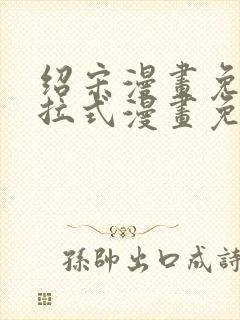 绍宋漫畫免
拉式漫畫免
孫帥出口成詩